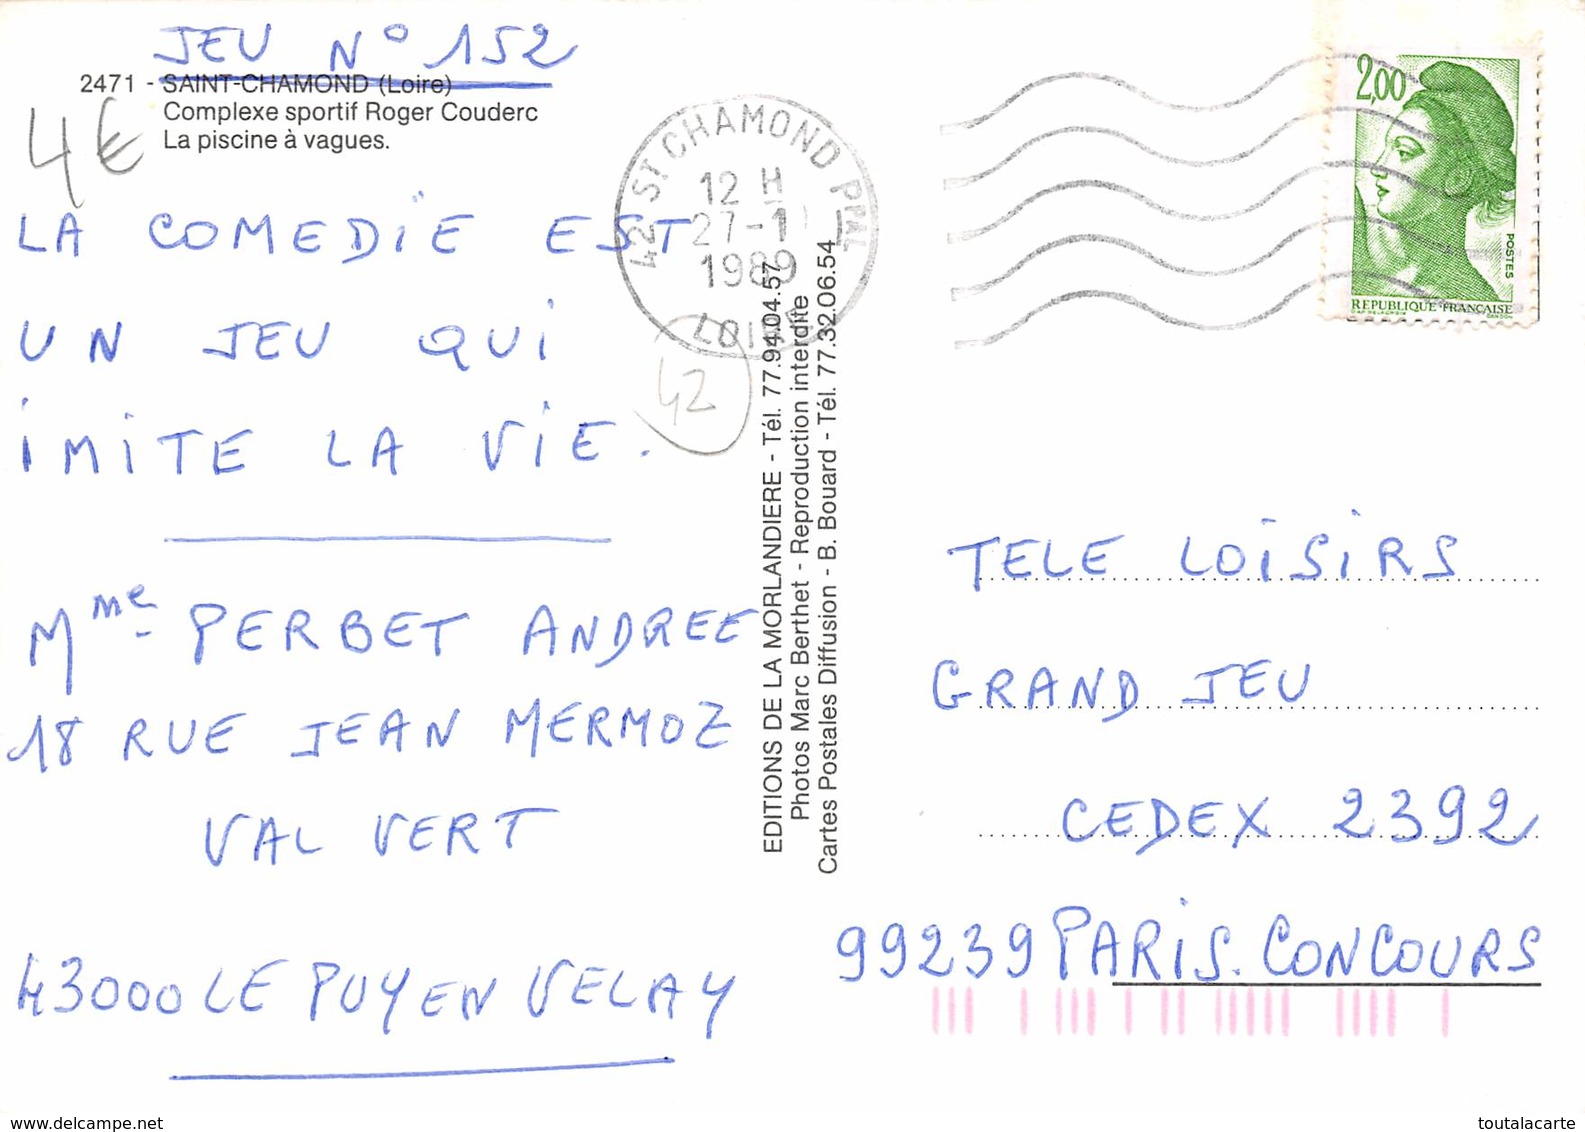 JEU N° 152
2471 - SAINT-CHAMOND (Loire)
Complexe sportif Roger Couderc
La piscine à vagues.
4€
LA COMEDIE EST
UN JEU QUI
IMITE LA VIE.
Mme PERBET ANDREE
18 RUE JEAN MERMOZ
VAL VERT
43000 LE PUY EN VELAY
42 ST CHAMOND PPAL
12 H
27-1
1989
LOIRE
42
EDITIONS DE LA MORLANDIERE - Tél. 77.94.04.57
Photos Marc Berthet - Reproduction interdite
Cartes Postales Diffusion - B. Bouard - Tél. 77.32.06.54
2,00
POSTES
REPUBLIQUE FRANÇAISE
D'AP. DELACROIX GANDON
TELE LOISIRS
GRAND JEU
CEDEX 2392
99239 PARIS. CONCOURS
www.delcampe.net
toutalacarte